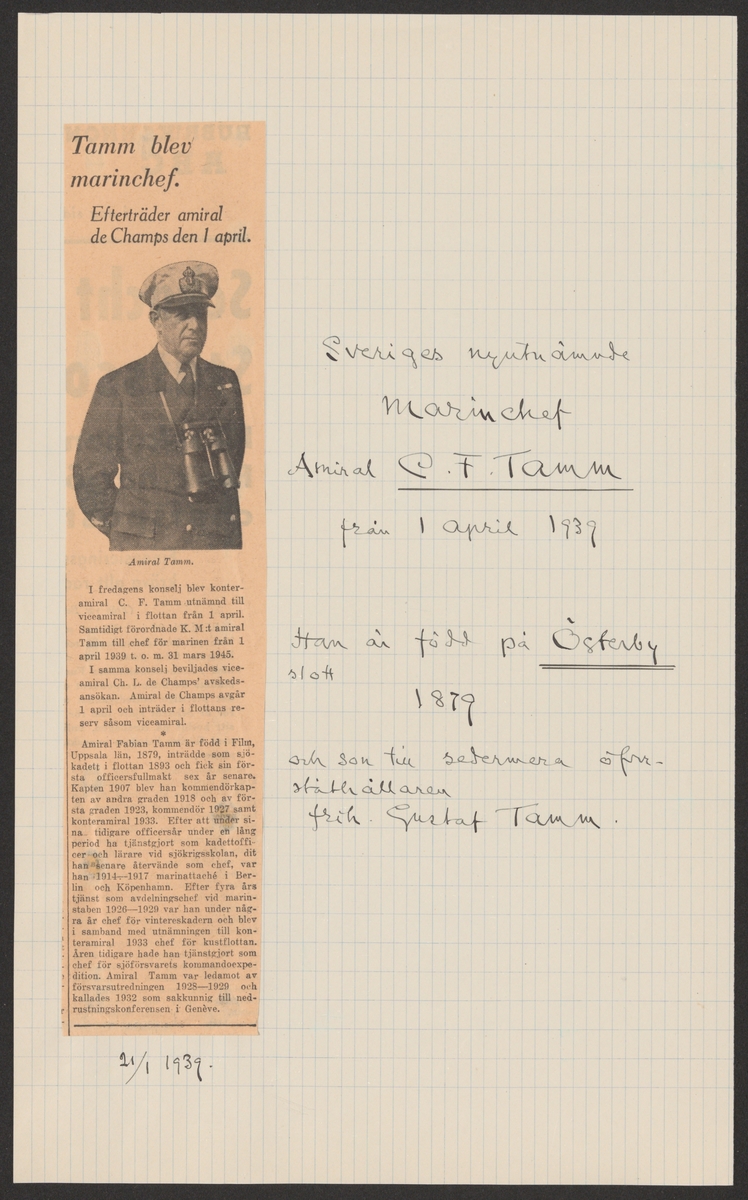 Tamm blev
marinchef.
Efterträder amiral
de Champs den 1 april.
Amiral Tamm.
I fredagens konselj blev konter-
amiral C. F. Tamm utnämnd till
viceamiral i flottan från 1 april.
Samtidigt förordnade K. M:t amiral
Tamm till chef för marinen från 1
april 1939 t. o. m. 31 mars 1945.
I samma konselj beviljades vice-
amiral Ch. L. de Champs' avskeds-
ansökan. Amiral de Champs avgår
1 april och inträder i flottans re-
serv såsom viceamiral.
*
Amiral Fabian Tamm är född i Film,
Uppsala län, 1879, inträdde som sjö-
kadett i flottan 1893 och fick sin för-
sta officersfullmakt sex år senare.
Kapten 1907 blev han kommendörkap-
ten av andra graden 1918 och av för-
sta graden 1923, kommendör 1927 samt
konteramiral 1933. Efter att under si-
na tidigare officersår under en lång
period ha tjänstgjort som kadettoffi-
cer och lärare vid sjökrigsskolan, dit
han senare återvände som chef, var
han 1914—1917 marinattaché i Ber-
lin och Köpenhamn. Efter fyra års
tjänst som avdelningschef vid marin-
staben 1926—1929 var han under någ-
ra år chef för vintereskadern och blev
i samband med utnämningen till kon-
teramiral 1933 chef för kustflottan.
Åren tidigare hade han tjänstgjort som
chef för sjöförsvarets kommandoexpe-
dition. Amiral Tamm var ledamot av
försvarsutredningen 1928—1929 och
kallades 1932 som sakkunnig till ned-
rustningskonferensen i Genève.
21/1 1939.
Sveriges nyutnämnde
Marinchef
Amiral C. F. Tamm
från 1 april 1939
Han är född på Österby
slott
1879
och son till sedermera öfver-
ståthållaren
frih. Gustaf Tamm.